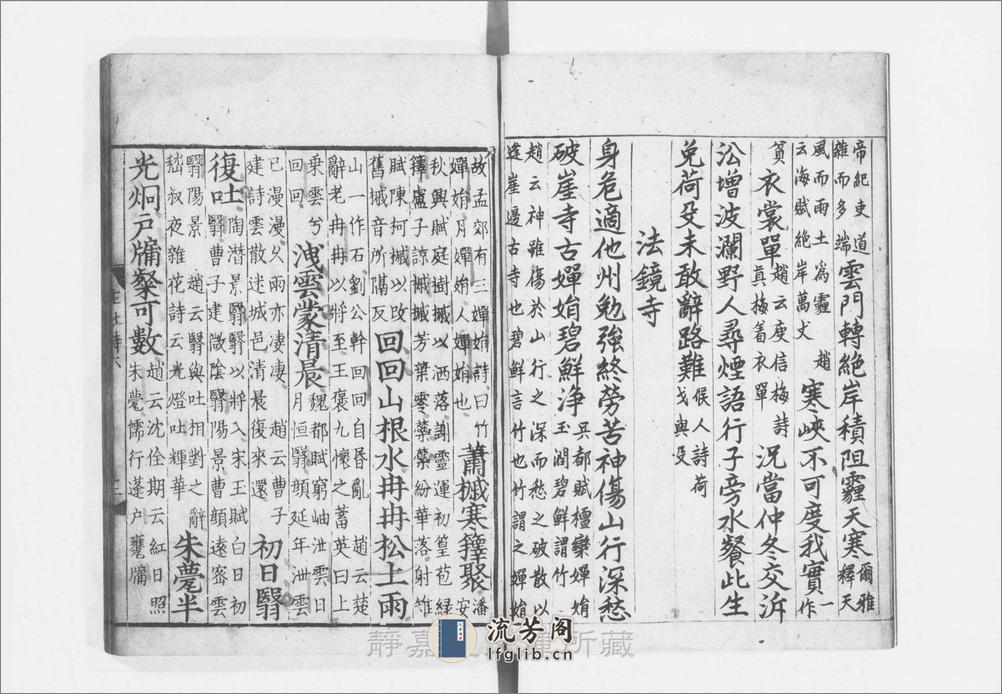 帝紀吏道
雜而多端
雲門轉絕岸積阻霾天寒
爾雅
釋天
風而雨土為霾 趙
云海賦絕岸萬丈
寒峽不可度我實
一
作
貧
衣裳單
趙云庾信梅詩
真梅着衣單
況當仲冬交泝
㳂增波瀾野人尋煙語行子旁水餐此生
免荷殳未敢辭路難
候人詩荷
戈與殳
法鏡寺
身危適他州勉強終勞苦神傷山行深愁
破崖寺古嬋娟碧鮮淨
吳都賦檀欒嬋娟
玉潤碧鮮謂竹
趙云神雖傷於山行之深而愁之破散以
逢崖邊古寺也碧鮮言竹也竹謂之嬋娟
故孟郊有三嬋娟詩曰竹
嬋娟月嬋娟人嬋娟也
蕭摵寒籜聚
潘
安
秋興賦庭樹摵以洒落謝靈運初篁苞綠
籜盧子諒摵摵芳葉零蘂蘂紛華落射雉
賦陳柯摵以改
舊摵音所隔反
回回山根水冉冉松上雨
山一作石劉公幹回回自昏亂 趙云楚
辭老冉冉以將至王褒九懷之蓄英曰上
乘雲兮
回回
洩雲蒙清晨
魏都賦窮岫泄雲日
月恒翳顏延年泄雲
已漫漫久雨亦凄凄 趙云曹子
建詩雲散迷城邑清晨復來還
初日翳
復吐
陶潛景翳翳以將入宋玉賦白日初
翳曹子建徵陰翳陽景曹顏遠密雲
翳陽景 趙云翳與吐相對之辭
嵇叔夜雜花詩云光燈吐輝華
朱甍半
光炯戶牖粲可數
趙云沈佺期云紅日照
朱甍儒行蓬戶甕牖
流芳阁
lfglib.cn